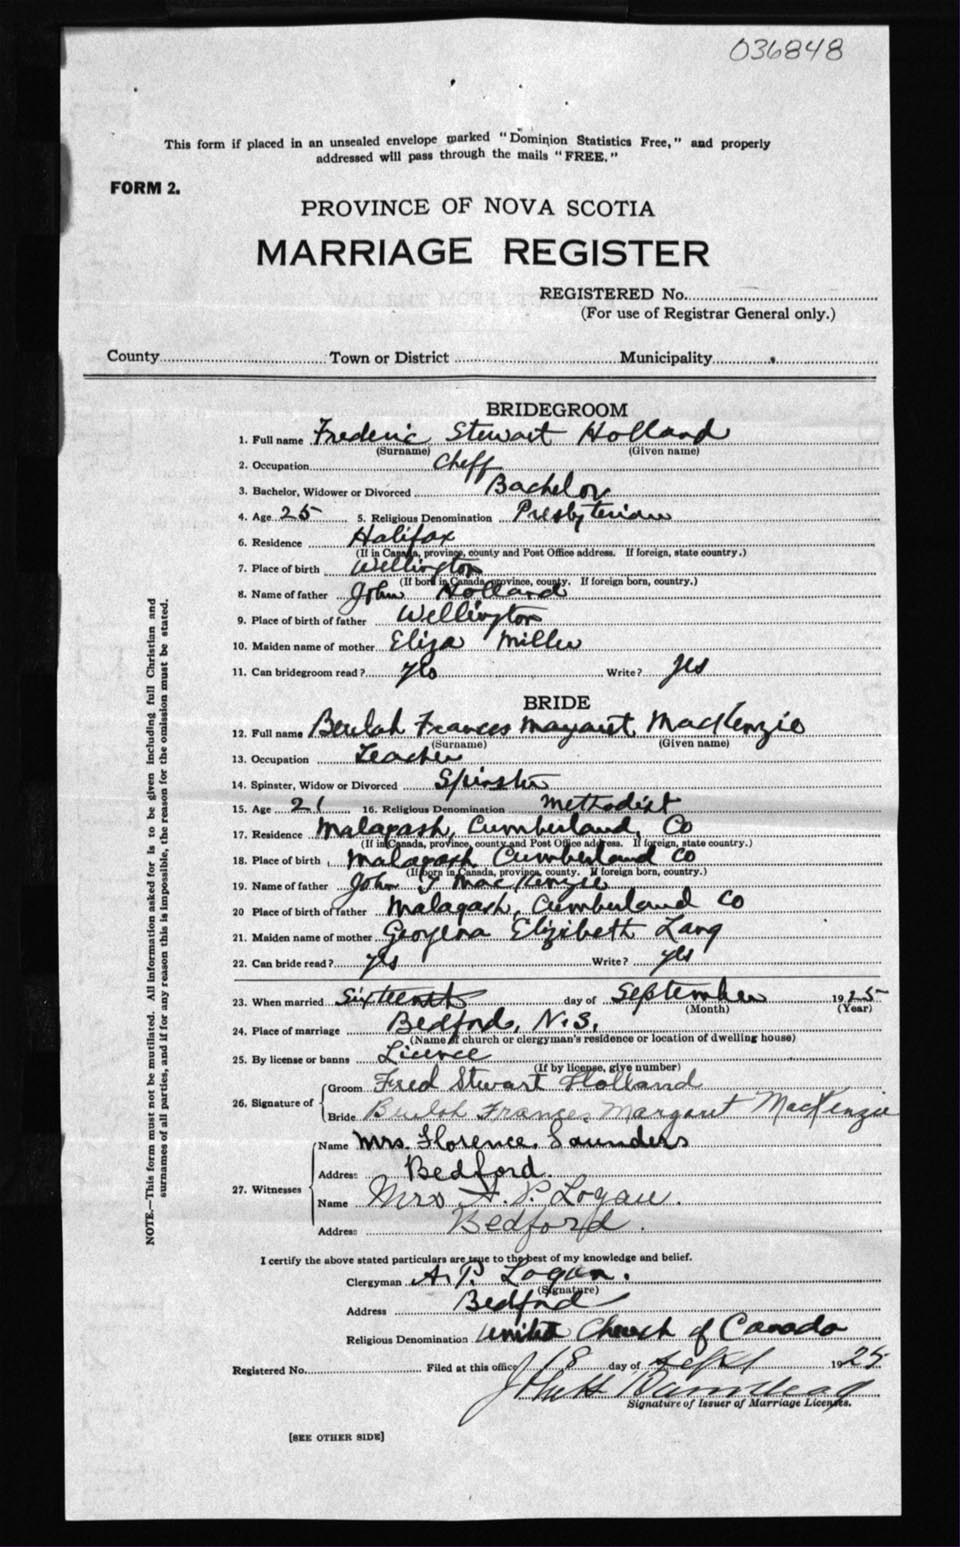 036848
This form if placed in an unsealed envelope marked "Dominion Statistics Free," and properly
addressed will pass through the mails "FREE."
FORM 2.
PROVINCE OF NOVA SCOTIA
MARRIAGE REGISTER
REGISTERED No.
(For use of Registrar General only.)
County Town or District Municipality
BRIDEGROOM
1. Full name Frederic Stewart Holland
(Surname) (Given name)
2. Occupation Cheff
3. Bachelor, Widower or Divorced Bachelor
4. Age 25 5. Religious Denomination Presbyterian
6. Residence Halifax
(If in Canada, province, county and Post Office address. If foreign, state country.)
7. Place of birth Wellington
(If born in Canada, province, county. If foreign born, country.)
8. Name of father John Holland
9. Place of birth of father Wellington
10. Maiden name of mother Eliza Miller
11. Can bridegroom read? yes Write? yes
BRIDE
12. Full name Beulah Frances Margaret MacKenzie
(Surname) (Given name)
13. Occupation Teacher
14. Spinster, Widow or Divorced Spinster
15. Age 21 16. Religious Denomination Methodist
17. Residence Malagash, Cumberland, Co
(If in Canada, province, county and Post Office address. If foreign, state country.)
18. Place of birth Malagash Cumberland Co
(If born in Canada, province, county. If foreign born, country.)
19. Name of father John T MacKenzie
20 Place of birth of father Malagash, Cumberland Co
21. Maiden name of mother Georgena Elizibeth Lang
22. Can bride read? yes Write? yes
23. When married Sixteenth day of September 1925
(Month) (Year)
24. Place of marriage Bedford, N.S.
(Name of church or clergyman's residence or location of dwelling house)
25. By license or banns Licence
(If by license, give number)
26. Signature of Groom Fred Stewart Holland
Bride Beulah Frances Margaret MacKenzie
27. Witnesses Name Mrs. Florence Saunders
Address Bedford.
Name Mrs A. P. Logan.
Address Bedford.
I certify the above stated particulars are true to the best of my knowledge and belief.
Clergyman A. P. Logan.
(Signature)
Address Bedford
Religious Denomination United Church of Canada
Registered No. Filed at this office 18 day of Sept 1925
Signature of Issuer of Marriage Licenses.
[SEE OTHER SIDE]
NOTE.—This form must not be mutilated. All information asked for is to be given including full Christian and
surnames of all parties, and if for any reason this is impossible, the reason for the omission must be stated.